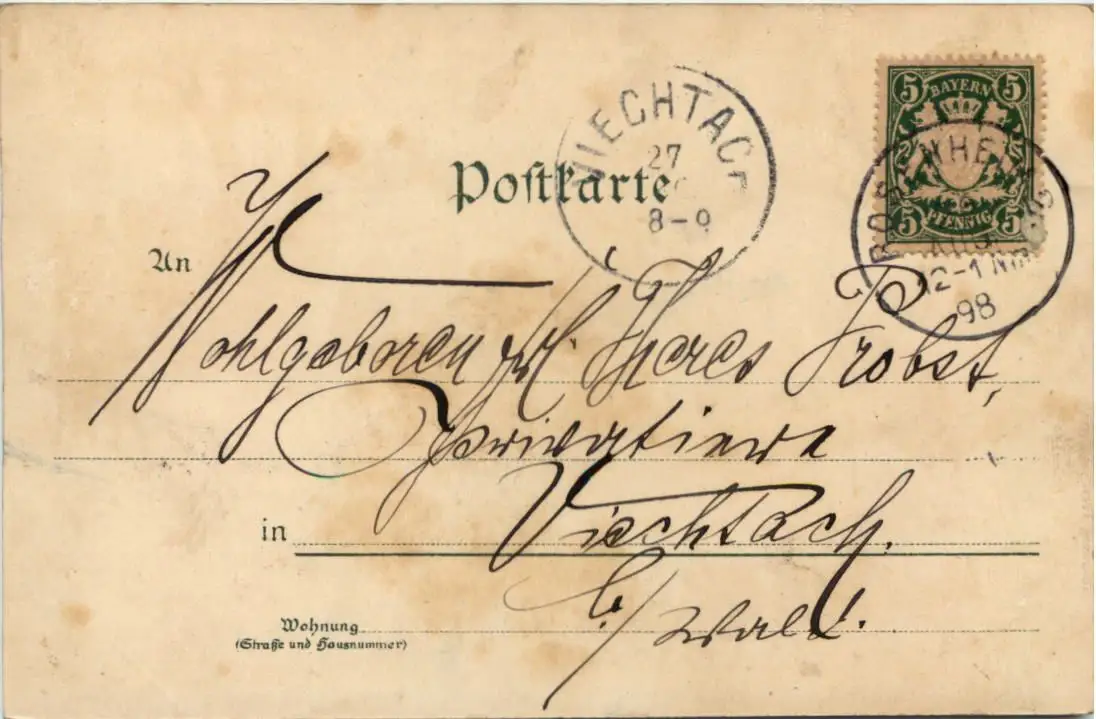 Postkarte
VIECHTACH
27
8-9
5 BAYERN 5
5 PFENNIG 5
ROSENHEIM
AUG.
12-1 Nm
98
An
Wohlgeboren Frl. Theres Probst,
Privatiere
in Viechtach.
b./Wald.
Wohnung
(Straße und Hausnummer)